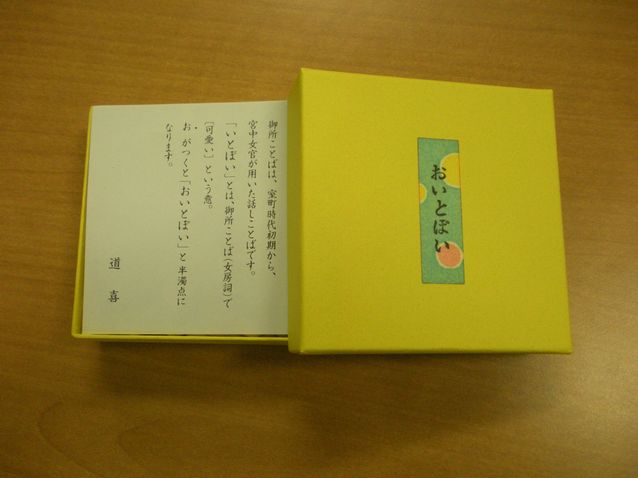 御所ことばは、室町時代初期から、
宮中女官が用いた話しことばです。
「いとぼい」とは、御所ことば(女房詞)で
[可愛い]という意。
お がつくと「おいとぽい」と半濁点に
なります。
道 喜
おいとぽい